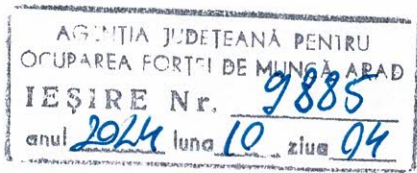 AGENȚIA JUDEȚEANĂ PENTRU
OCUPAREA FORȚEI DE MUNCĂ ARAD
IEȘIRE Nr. 9885
anul 2024 luna 10 ziua 04